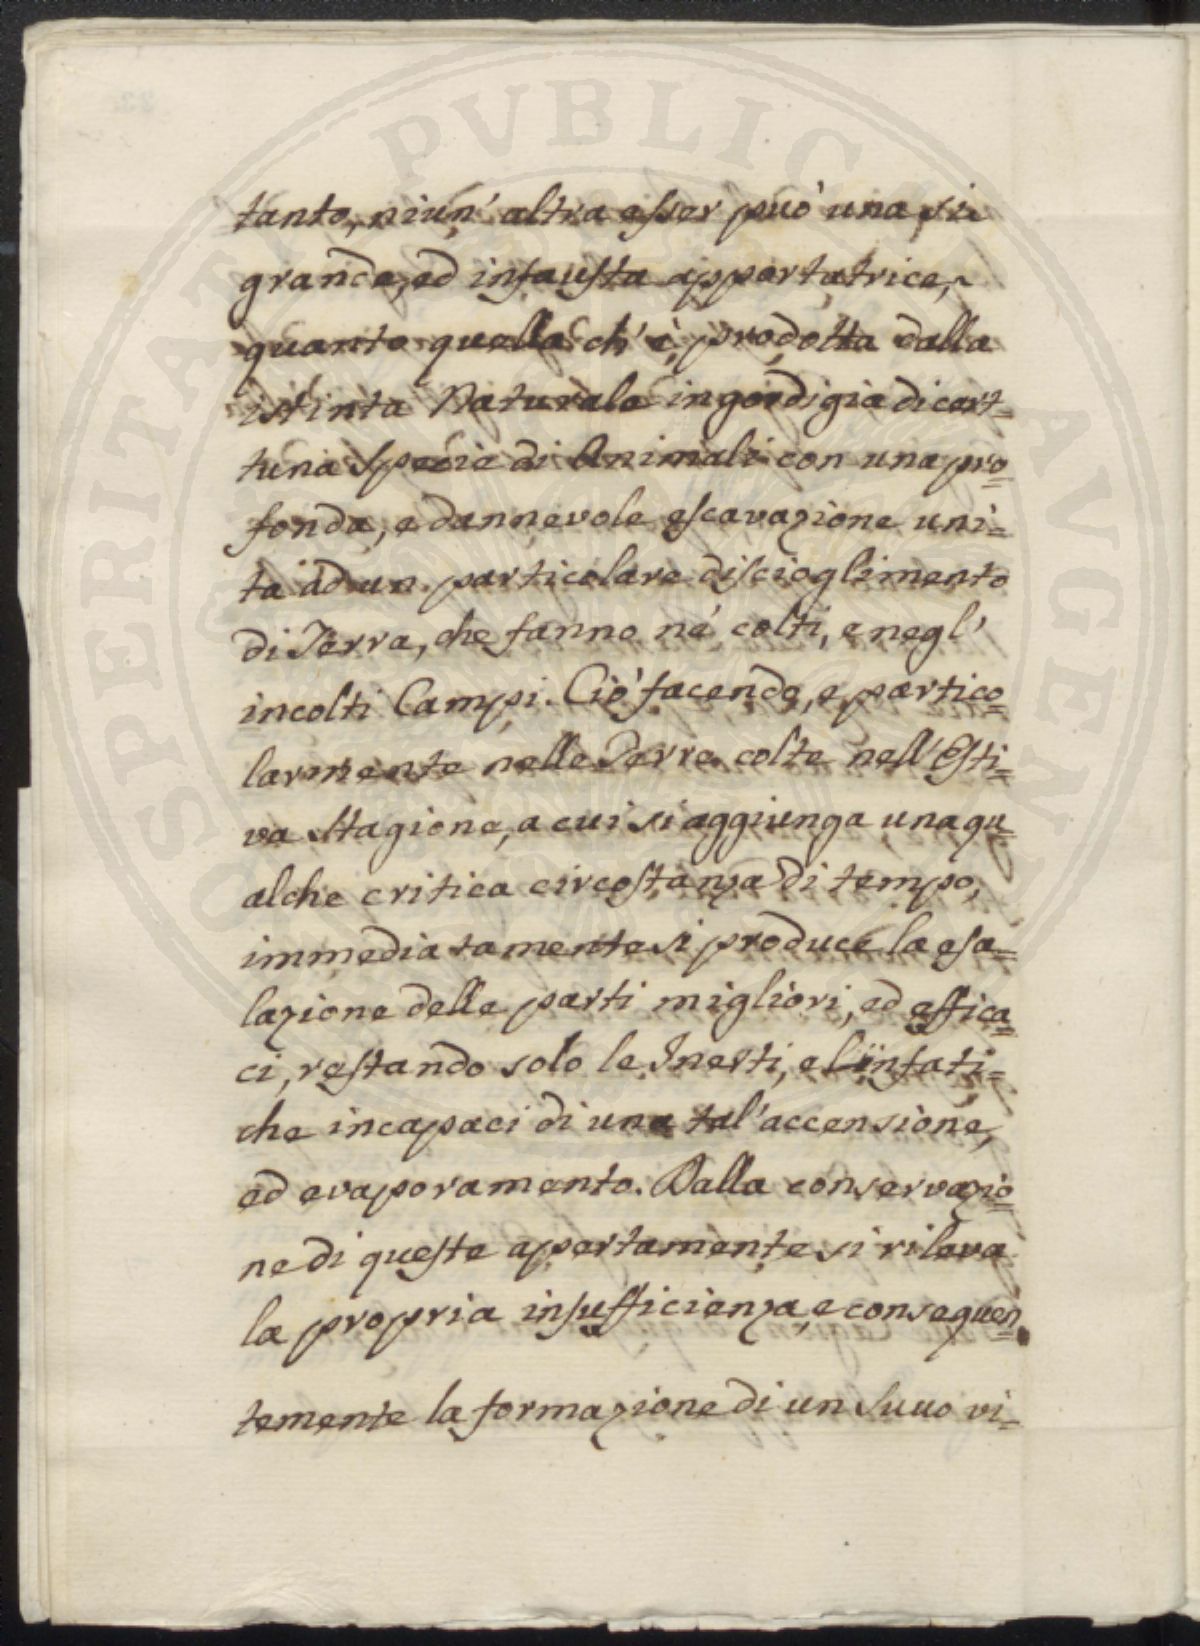 tanto, niun' altra esser può una sì
grande, ed infausta apportatrice,
quanto quella ch' è prodotta dalla
istinta Naturale ingordigia di cert=
tuna Specie di Animali con una pro=
fonda, e dannevole escavazione uni=
ta ad un particolare discioglimento
di Terra, che fanno né colti, e negl'
incolti Campi. Ciò facendo, e partico=
larmente nelle Terre colte nell' Esti=
va Stagione, a cui si aggiunga una qu=
alche critica circostanza di tempo,
immediatamente si produce la esa=
lazione delle parti migliori, ed effica=
ci, restando solo le Inerti, e linfati=
che incapaci di una tal' accensione,
ed evaporamento. Dalla conservazio=
ne di queste apertamente si rileva
la propria insufficienza, e conseguen=
temente la formazione di un Suuo vi=
SPERITATI PVBLICAE AVGEN